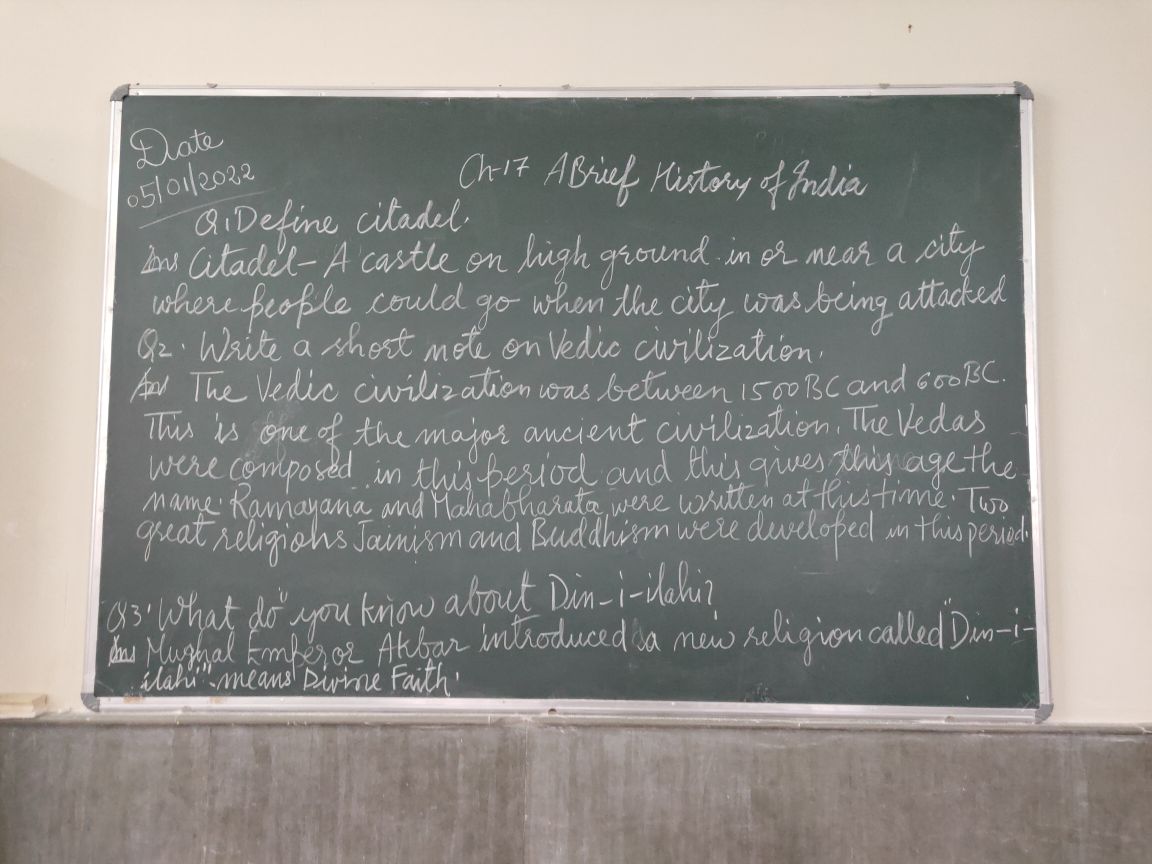 Date
05/01/2022
Ch-17 A Brief History of India
Q1. Define citadel.
Ans Citadel - A castle on high ground in or near a city
where people could go when the city was being attacked
Q2. Write a short note on Vedic civilization.
Ans The Vedic civilization was between 1500 BC and 600 BC.
This is one of the major ancient civilization. The Vedas
were composed in this period and this gives this age the
name. Ramayana and Mahabharata were written at this time. Two
great religions Jainism and Buddhism were developed in this period.
Q3. What do you know about Din-i-ilahi?
Ans Mughal Emperor Akbar introduced a new religion called "Din-i-
ilahi" means Divine Faith.